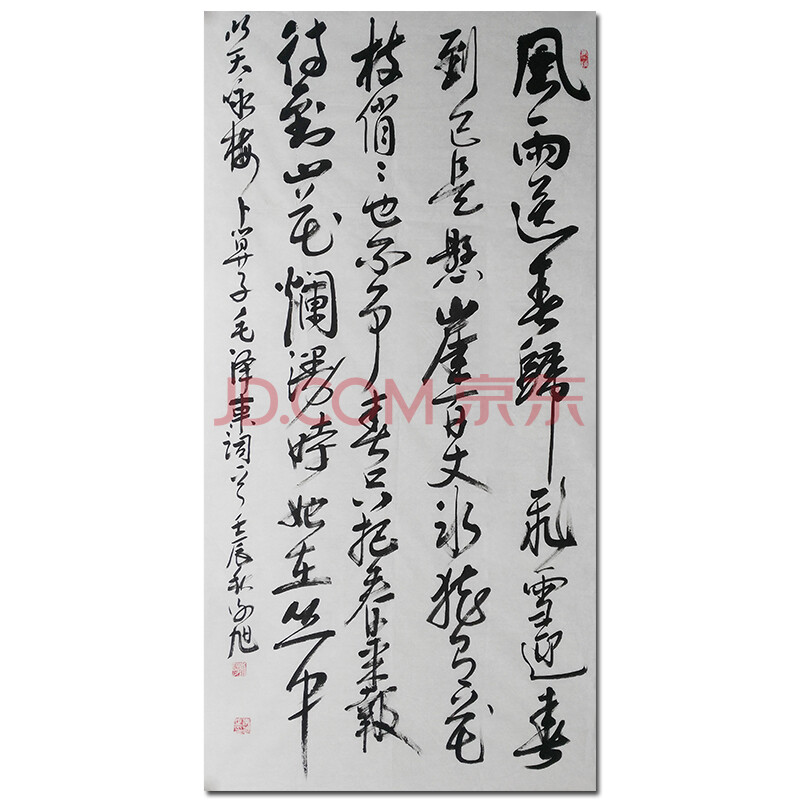 風雨送春歸飛雪迎春
到已是懸崖百丈冰猶有花
枝俏〻也不争春只把春来報
待到山花爛漫時她在丛中
笑 咏梅 卜算子毛泽東词一首 壬辰秋 旭
JD.COM 京东